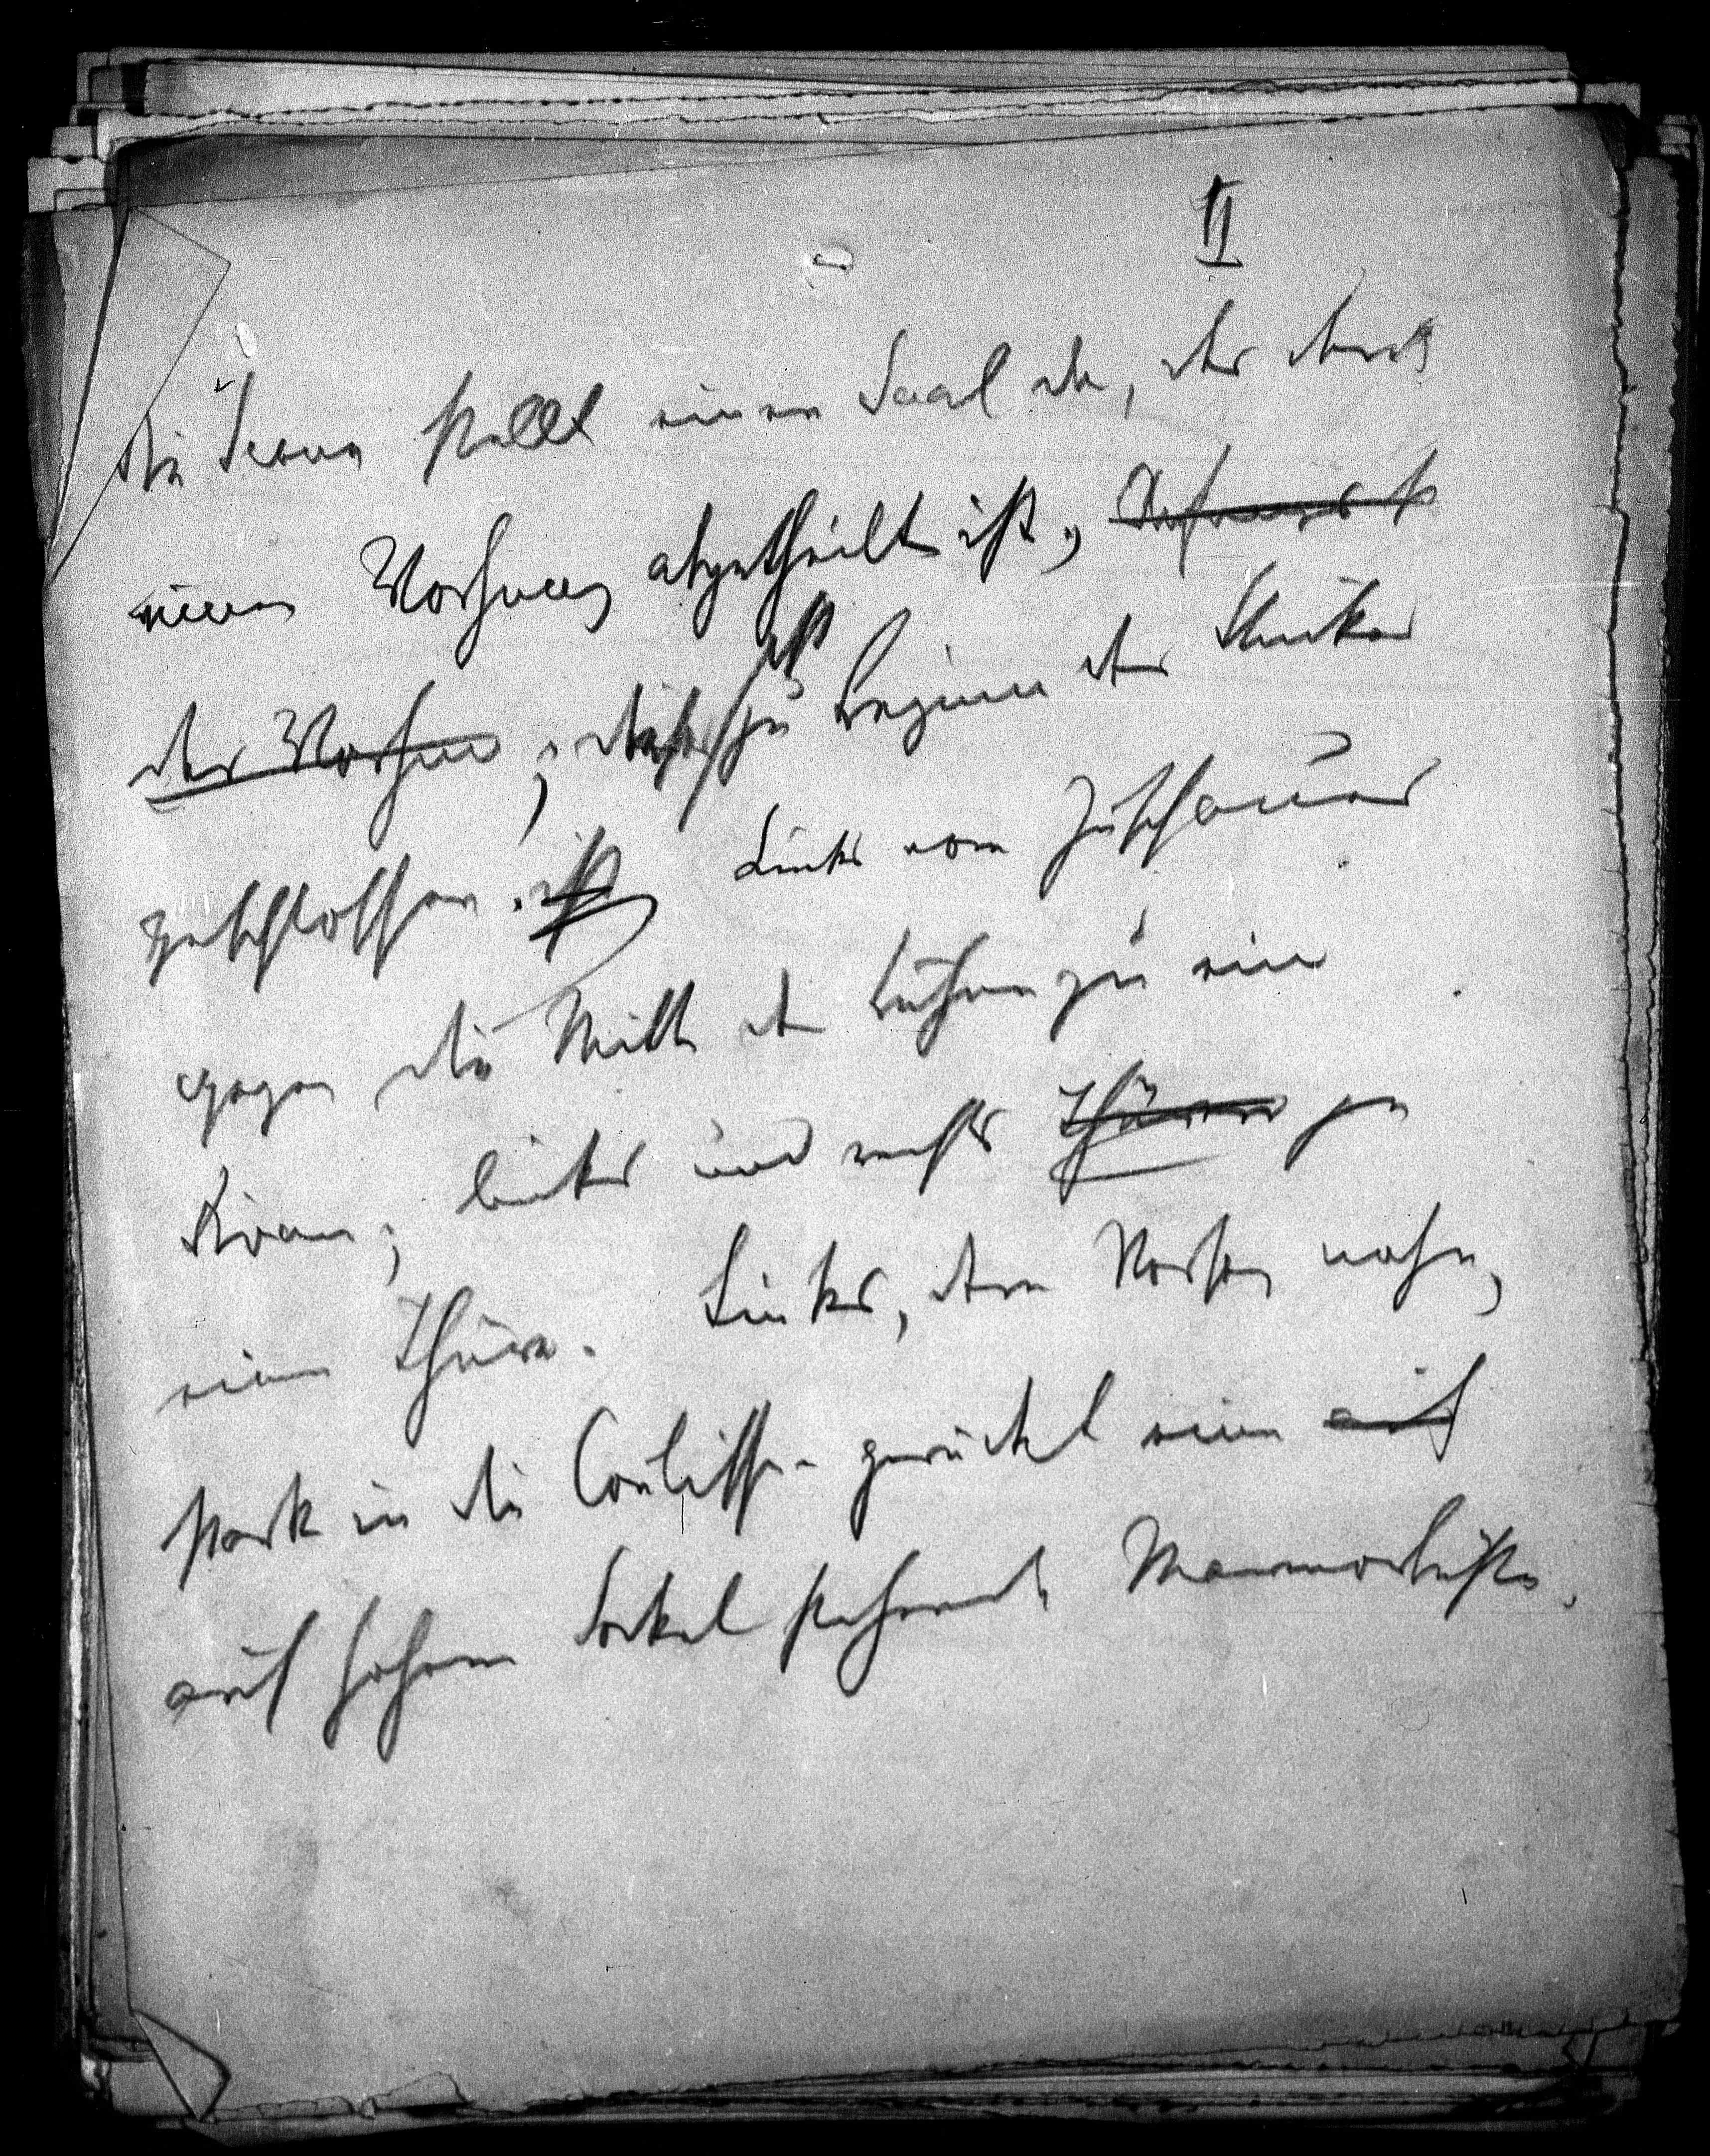 II
Die Scene stellt einen Saal dar, der durch
einen Vorhang abgetheilt ist,
der Vorhang; dieser ist zu Beginn des Stückes
geschlossen. ist Links vom Zuschauer
gegen die Mitte der Bühne zu eine
Divan; links und rechts Thüren je
eine Thüre. Links, dem Vorhang nahe,
stark in die Coulissen gerückt eine auf
auf hohem Sockel stehende Marmorbüste.